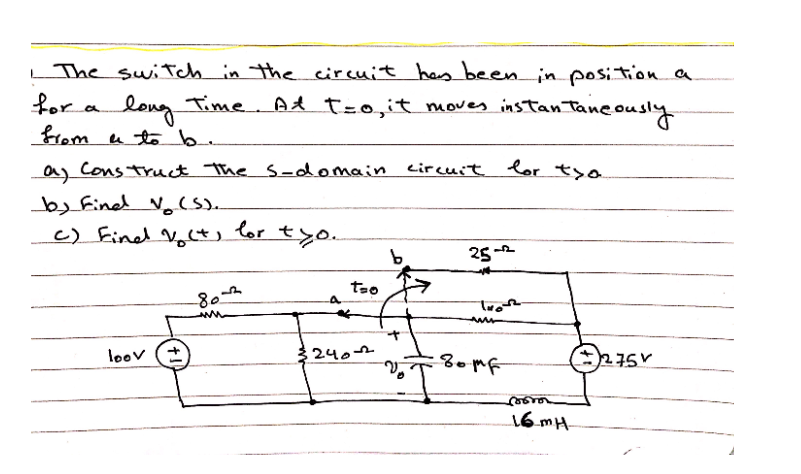 The switch in the circuit has been in position a
for a long time. At t=0, it moves instantaneously
from a to b.
a) Construct the s-domain circuit for t>0
b) Find V₀(s).
c) Find V₀(t) for t≥0.
b 25Ω
80Ω a t=0
100V + - 240Ω + V₀ - 80 mF + - 275V
16 mH